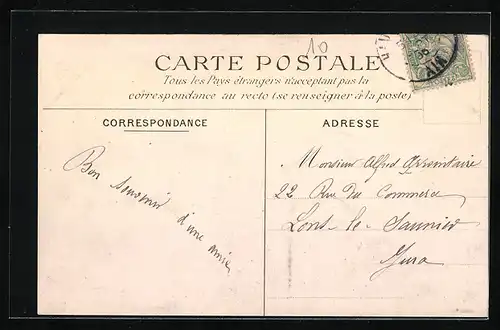 10
CARTE POSTALE
Tous les Pays étrangers n'acceptant pas la
correspondance au recto (se renseigner à la poste)
CORRESPONDANCE
Bon souvenir d'une amie
ADRESSE
Monsieur Alfred
22 Rue du Commerce
Lons-le-Saunier
Jura
AIN